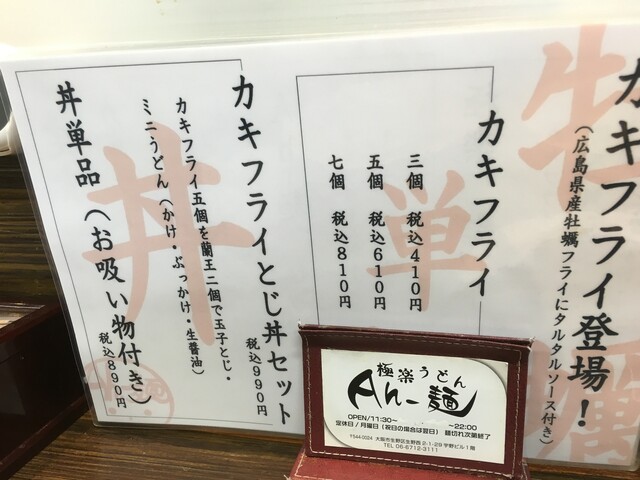 カキフライ登場！
（広島県産牡蠣フライにタルタルソース付き）
牡蠣
カキフライ
三個 税込410円
五個 税込610円
七個 税込810円
単
カキフライとじ丼セット
税込990円
カキフライ五個を蘭王二個で玉子とじ・
ミニうどん（かけ・ぶっかけ・生醤油）
丼単品（お吸い物付き）
税込890円
丼
極楽うどん
Ah-麺
OPEN/11:30~ ~22:00
定休日/月曜日（祝日の場合は翌日） 麺切れ次第終了
〒544-0024 大阪市生野区生野西2-1-29宇野ビル1階
TEL 06-6712-3111